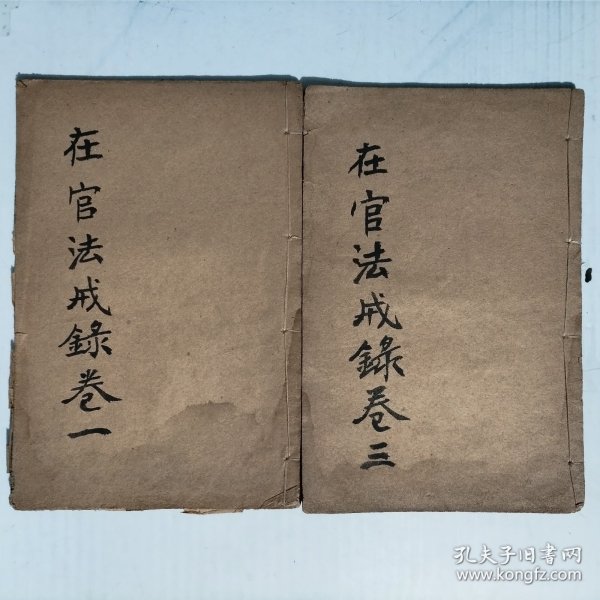 在官法戒錄卷一
在官法戒錄卷三
孔夫子旧书网
www.kongfz.com